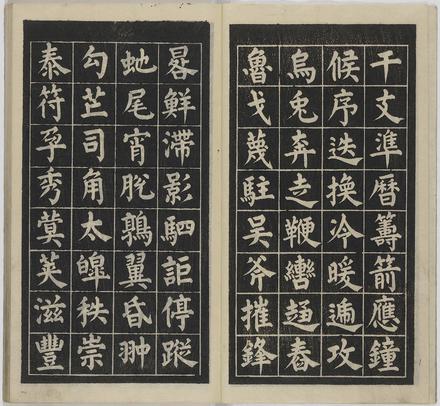 干支準曆籌箭應鐘
候序迭換冷暖遞攻
烏兔奔走鞭轡舂
魯戈蔑駐吳斧摧鋒
晷鮮滯影駟詎停蹤
虵尾宵脫鶉翼昏翀
勾芒司角太皞秩崇
泰符孚秀蓂莢滋豐